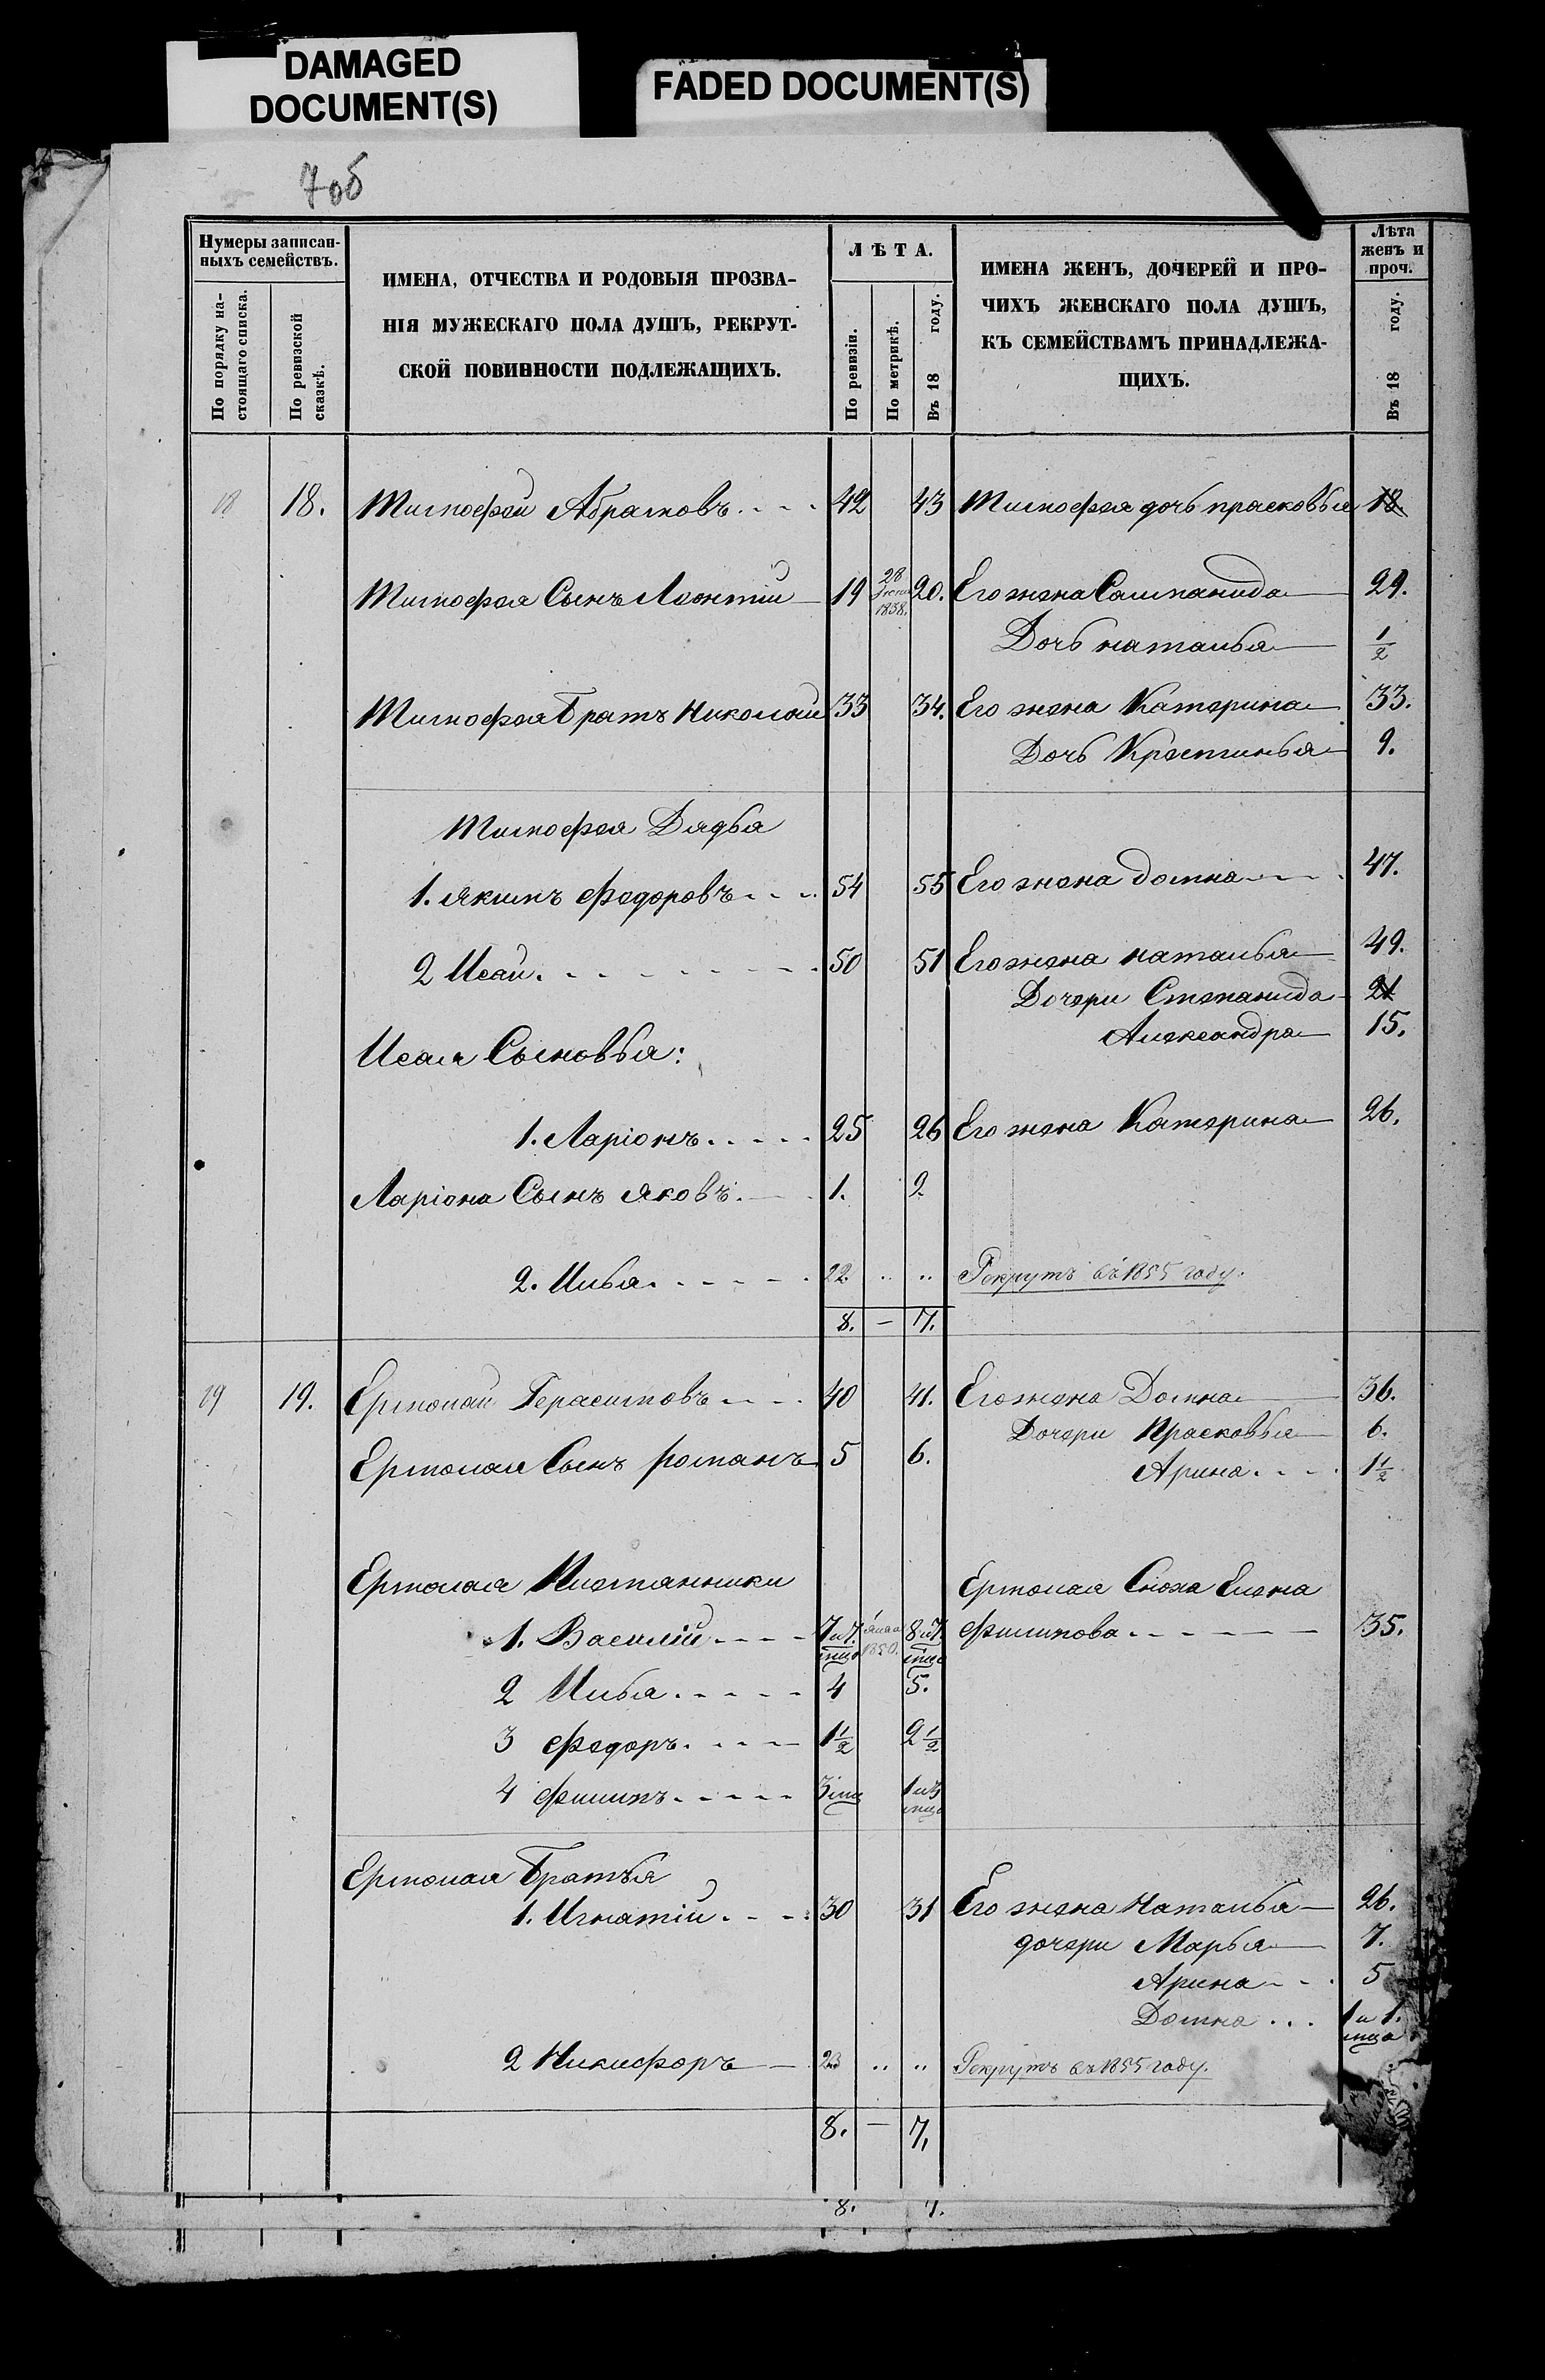 DAMAGED
DOCUMENT(S)
FADED DOCUMENT(S)
7 об
Нумеры записан-
ныхъ семействъ.
По порядку на-
стоящаго списка.
По ревизской
сказкѣ.
ИМЕНА, ОТЧЕСТВА И РОДОВЫЯ ПРОЗВА-
НІЯ МУЖЕСКАГО ПОЛА ДУШЪ, РЕКРУТ-
СКОЙ ПОВИННОСТИ ПОДЛЕЖАЩИХЪ.
ЛѢТА.
По ревизіи.
По метрикѣ.
Въ 18 году.
ИМЕНА ЖЕНЪ, ДОЧЕРЕЙ И ПРО-
ЧИХЪ ЖЕНСКАГО ПОЛА ДУШЪ,
КЪ СЕМЕЙСТВАМЪ ПРИНАДЛЕЖА-
ЩИХЪ.
Лѣта
женъ и
проч.
Въ 18 году.
18 18. Тимофей Абрамовъ 42 43 Тимофея дочь прасковья 18.
Тимофея Сынъ Леонтій 19 28 1858. 20. Его жена Сампанида 29.
Дочь наталья 1/2
Тимофея Братъ Николай 33 34. Его жена Катерина 33.
Дочь Крестинья 9.
Тимофея Дядья
1. якимъ федоровъ 54 55 Его жена домна 47.
2 Исай 50 51 Его жена наталья 49.
Дочери Степанида 21
Александра 15.
Исая Сыновья:
1. Ларіонъ 25 26 Его жена Катерина 26.
Ларіона Сынъ яковъ 1. 2.
2. Илья 22. " " Рекрутъ въ 1855 году.
8. — 7.
19 19. Ермолай Герасимовъ 40 41. Его жена Домна 36.
Дочери Прасковья 6.
Ермолая Сынъ романъ 5 6.
Арина 1 1/2
Ермолая Племянники
Ермолая Сноха Елена
1. Василій 7 и 7. мцо 1850. 8 и 7. мцо филипова 35.
2 Илья 4 5.
3 федоръ 1 1/2 2 1/2
4 филипъ 3 мц 1 и 3 мцо
Ермолая Братья
1. Игнатій 30 31 Его жена Наталья 26.
дочери Марья 7.
Арина 5
Домна 1 и 1. мца
2 Никифоръ 23 " " Рекрутъ въ 1855 году.
8. — 7.
8. 7.